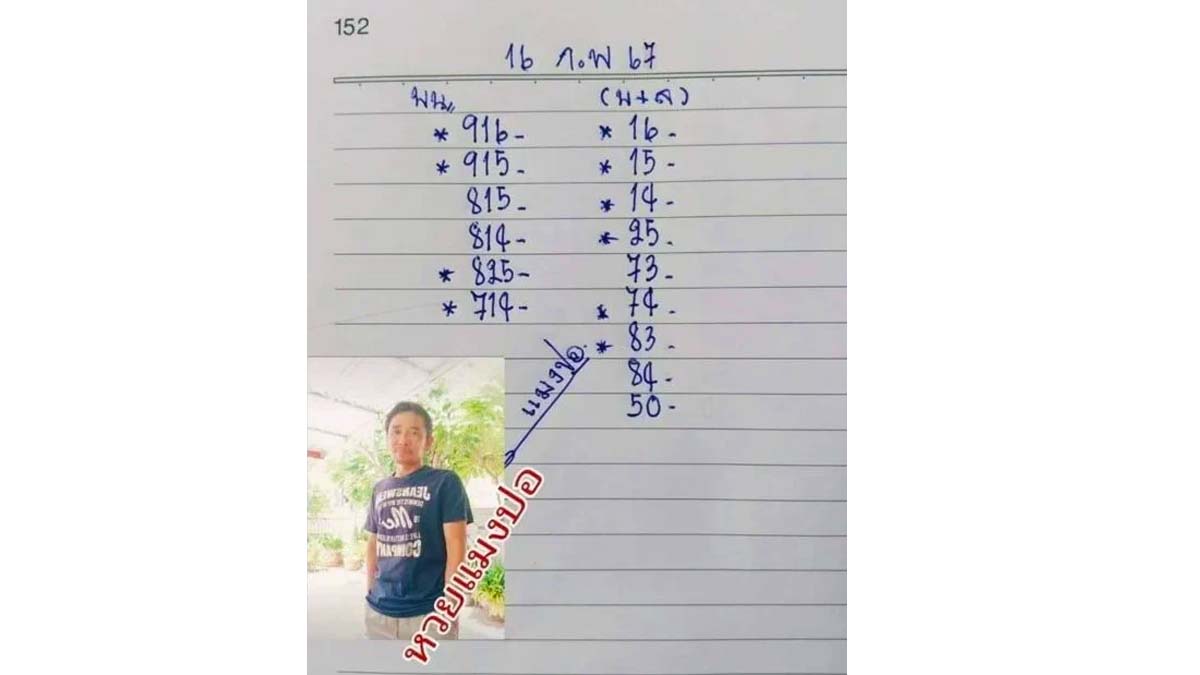 152
16 ก.พ 67
บน,,
(บ+ล)
* 916-
* 16-
* 915-
* 15-
815-
* 14-
814-
* 25-
* 825-
73-
* 714-
* 74-
* 83-
84-
50-
แมงปอ.
JEANSWEAR
Me
COMPANY
หวยแมงปอ